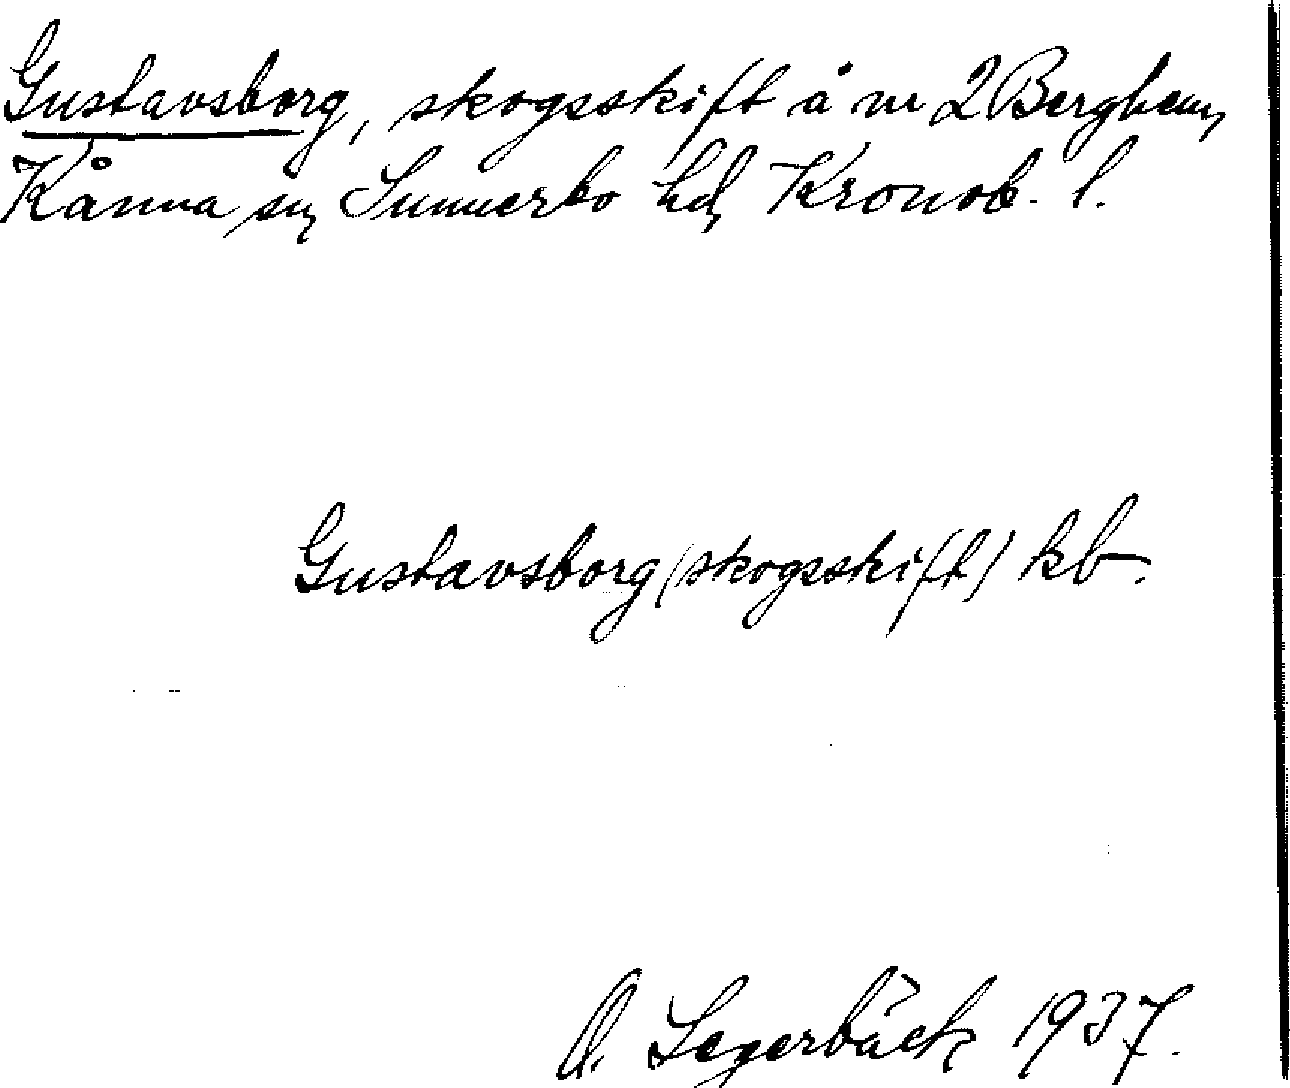 Gustavsborg, skogsskift å nr 2 Berghem,
Kånna sn, Sunnerbo hd, Kronob. l.
Gustavsborg (skogsskift) kb.
O. Segerbäck 1937.